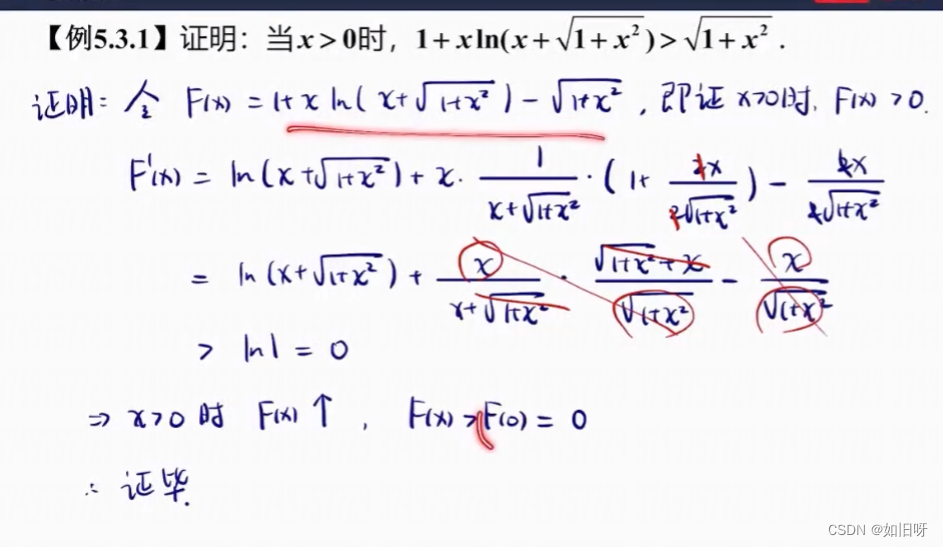 【例5.3.1】证明：当x>0时，1+xln(x+√(1+x²))>√(1+x²).
证明：令 F(x) = 1+x ln(x+√(1+x²)) - √(1+x²)，即证 x>0时, F(x) >0.
F'(x) = ln(x+√(1+x²)) + x· 1/(x+√(1+x²)) ·(1+ 2x/(2√(1+x²))) - 2x/(2√(1+x²))
= ln(x+√(1+x²)) + x/(x+√(1+x²)) · (√(1+x²)+x)/√(1+x²) - x/√(1+x²)
> ln1 = 0
⇒ x>0 时 F(x)↑, F(x)>F(0) = 0
∴ 证毕.
CSDN @如旧呀